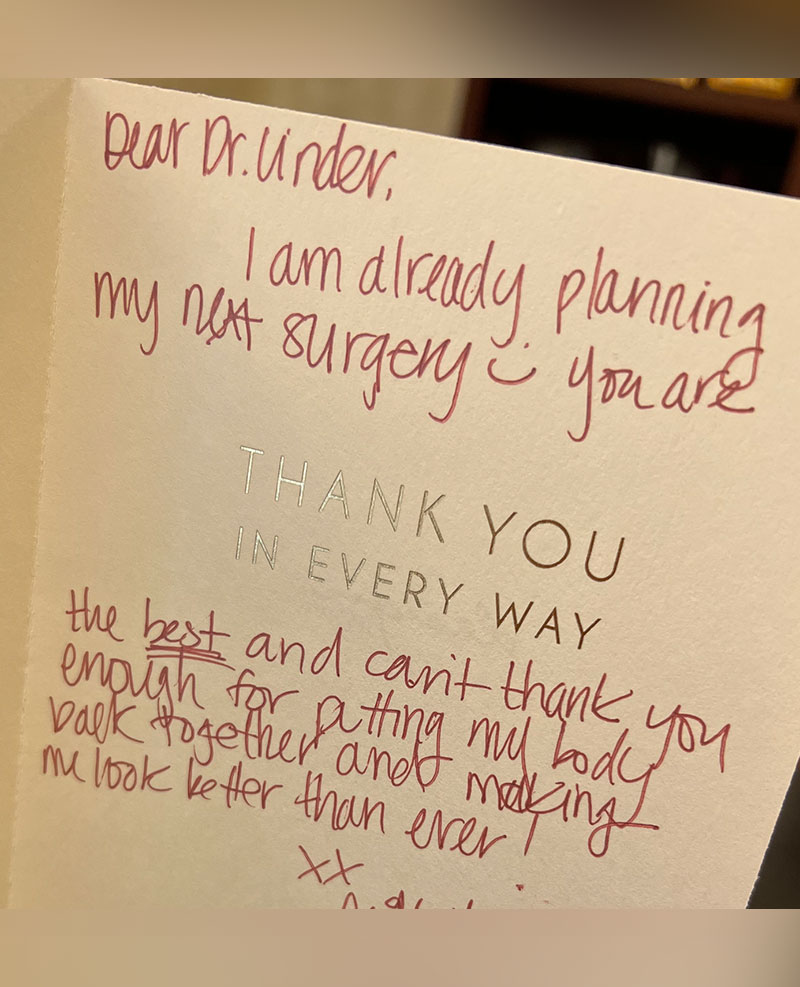 Dear Dr. Linder,
I am already planning
my next surgery you are
THANK YOU
IN EVERY WAY
the best and can't thank you
enough for putting my body
back together and making
me look better than ever!
XX